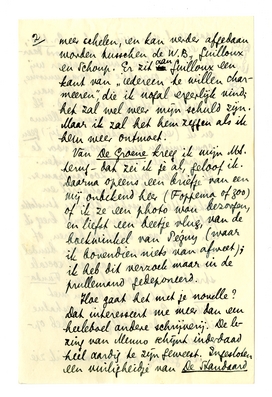 2/
meer schelen, en kan verder afgedaan
worden tusschen de W.B., Guilloux
en Schoup. Er zit van Guilloux een
kant van "iedereen te willen char-
meeren", die ik nogal ergerlijk vind;
het zal wel weer mijn schuld zijn.
Maar ik zal het hem zeggen als ik
hem weer ontmoet.
Van De Groene kreeg ik mijn Ms.
terug - dat zei ik je al, geloof ik.
Daarna opeens een briefje van een
mij onbekend heer (Foppema of zoo)
of ik ze een photo wou bezorgen,
en liefst een beetje vlug, van de
boekwinkel van Péguy (waar
ik bovendien niets van afweet);
ik heb dit verzoek maar in de
prullemand gedeponeerd.
Hoe gaat het met je novelle?
Dat interesseert me meer dan een
heeleboel andere schrijverij. De le-
zing van Menno schijnt inderdaad
heel aardig te zijn geweest. Ingesloten
een vuiligheidje van De Standaard